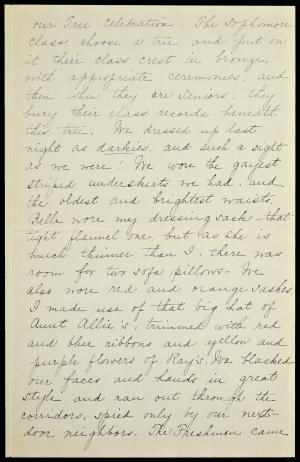 our Tree Celebration. The Sophomore
class choose a tree and put on
it their class crest in bronze,
with appropriate ceremonies, and
then when they are Seniors, they
bury their class records beneath
this tree. We dressed up last
night as darkies, and such a sight
as we were! We wore the gayest
striped undershirts we had, and
the oldest and brightest waists.
Belle wore my dressing sack - that
light flannel one, but as she is
much thinner than I, there was
room for two sofa pillows - We
also wore red and orange sashes.
I made use of that big hat of
Aunt Allie's, trimmed with red
and blue ribbons and yellow and
purple flowers of Ray's. We blacked
our faces and hands in great
style and ran out through the
corridors, spied only by our next-
door neighbors. The Freshmen came